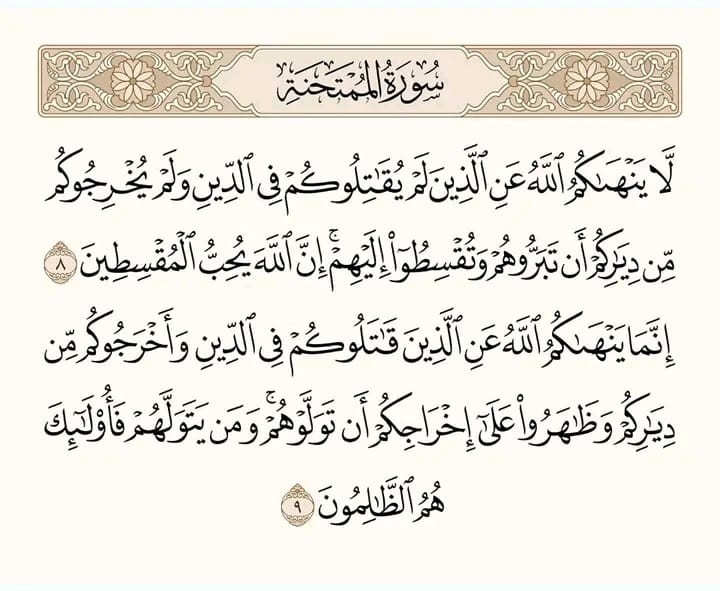 سُورَةُ المُمْتَحنَةِ
لَّا يَنْهَىٰكُمُ ٱللَّهُ عَنِ ٱلَّذِينَ لَمْ يُقَٰتِلُوكُمْ فِى ٱلدِّينِ وَلَمْ يُخْرِجُوكُم
مِّن دِيَٰرِكُمْ أَن تَبَرُّوهُمْ وَتُقْسِطُوٓا۟ إِلَيْهِمْ ۚ إِنَّ ٱللَّهَ يُحِبُّ ٱلْمُقْسِطِينَ ٨
إِنَّمَا يَنْهَىٰكُمُ ٱللَّهُ عَنِ ٱلَّذِينَ قَٰتَلُوكُمْ فِى ٱلدِّينِ وَأَخْرَجُوكُم مِّن
دِيَٰرِكُمْ وَظَٰهَرُوا۟ عَلَىٰٓ إِخْرَاجِكُمْ أَن تَوَلَّوْهُمْ ۚ وَمَن يَتَوَلَّهُمْ فَأُو۟لَٰٓئِكَ
هُمُ ٱلظَّٰلِمُونَ ٩